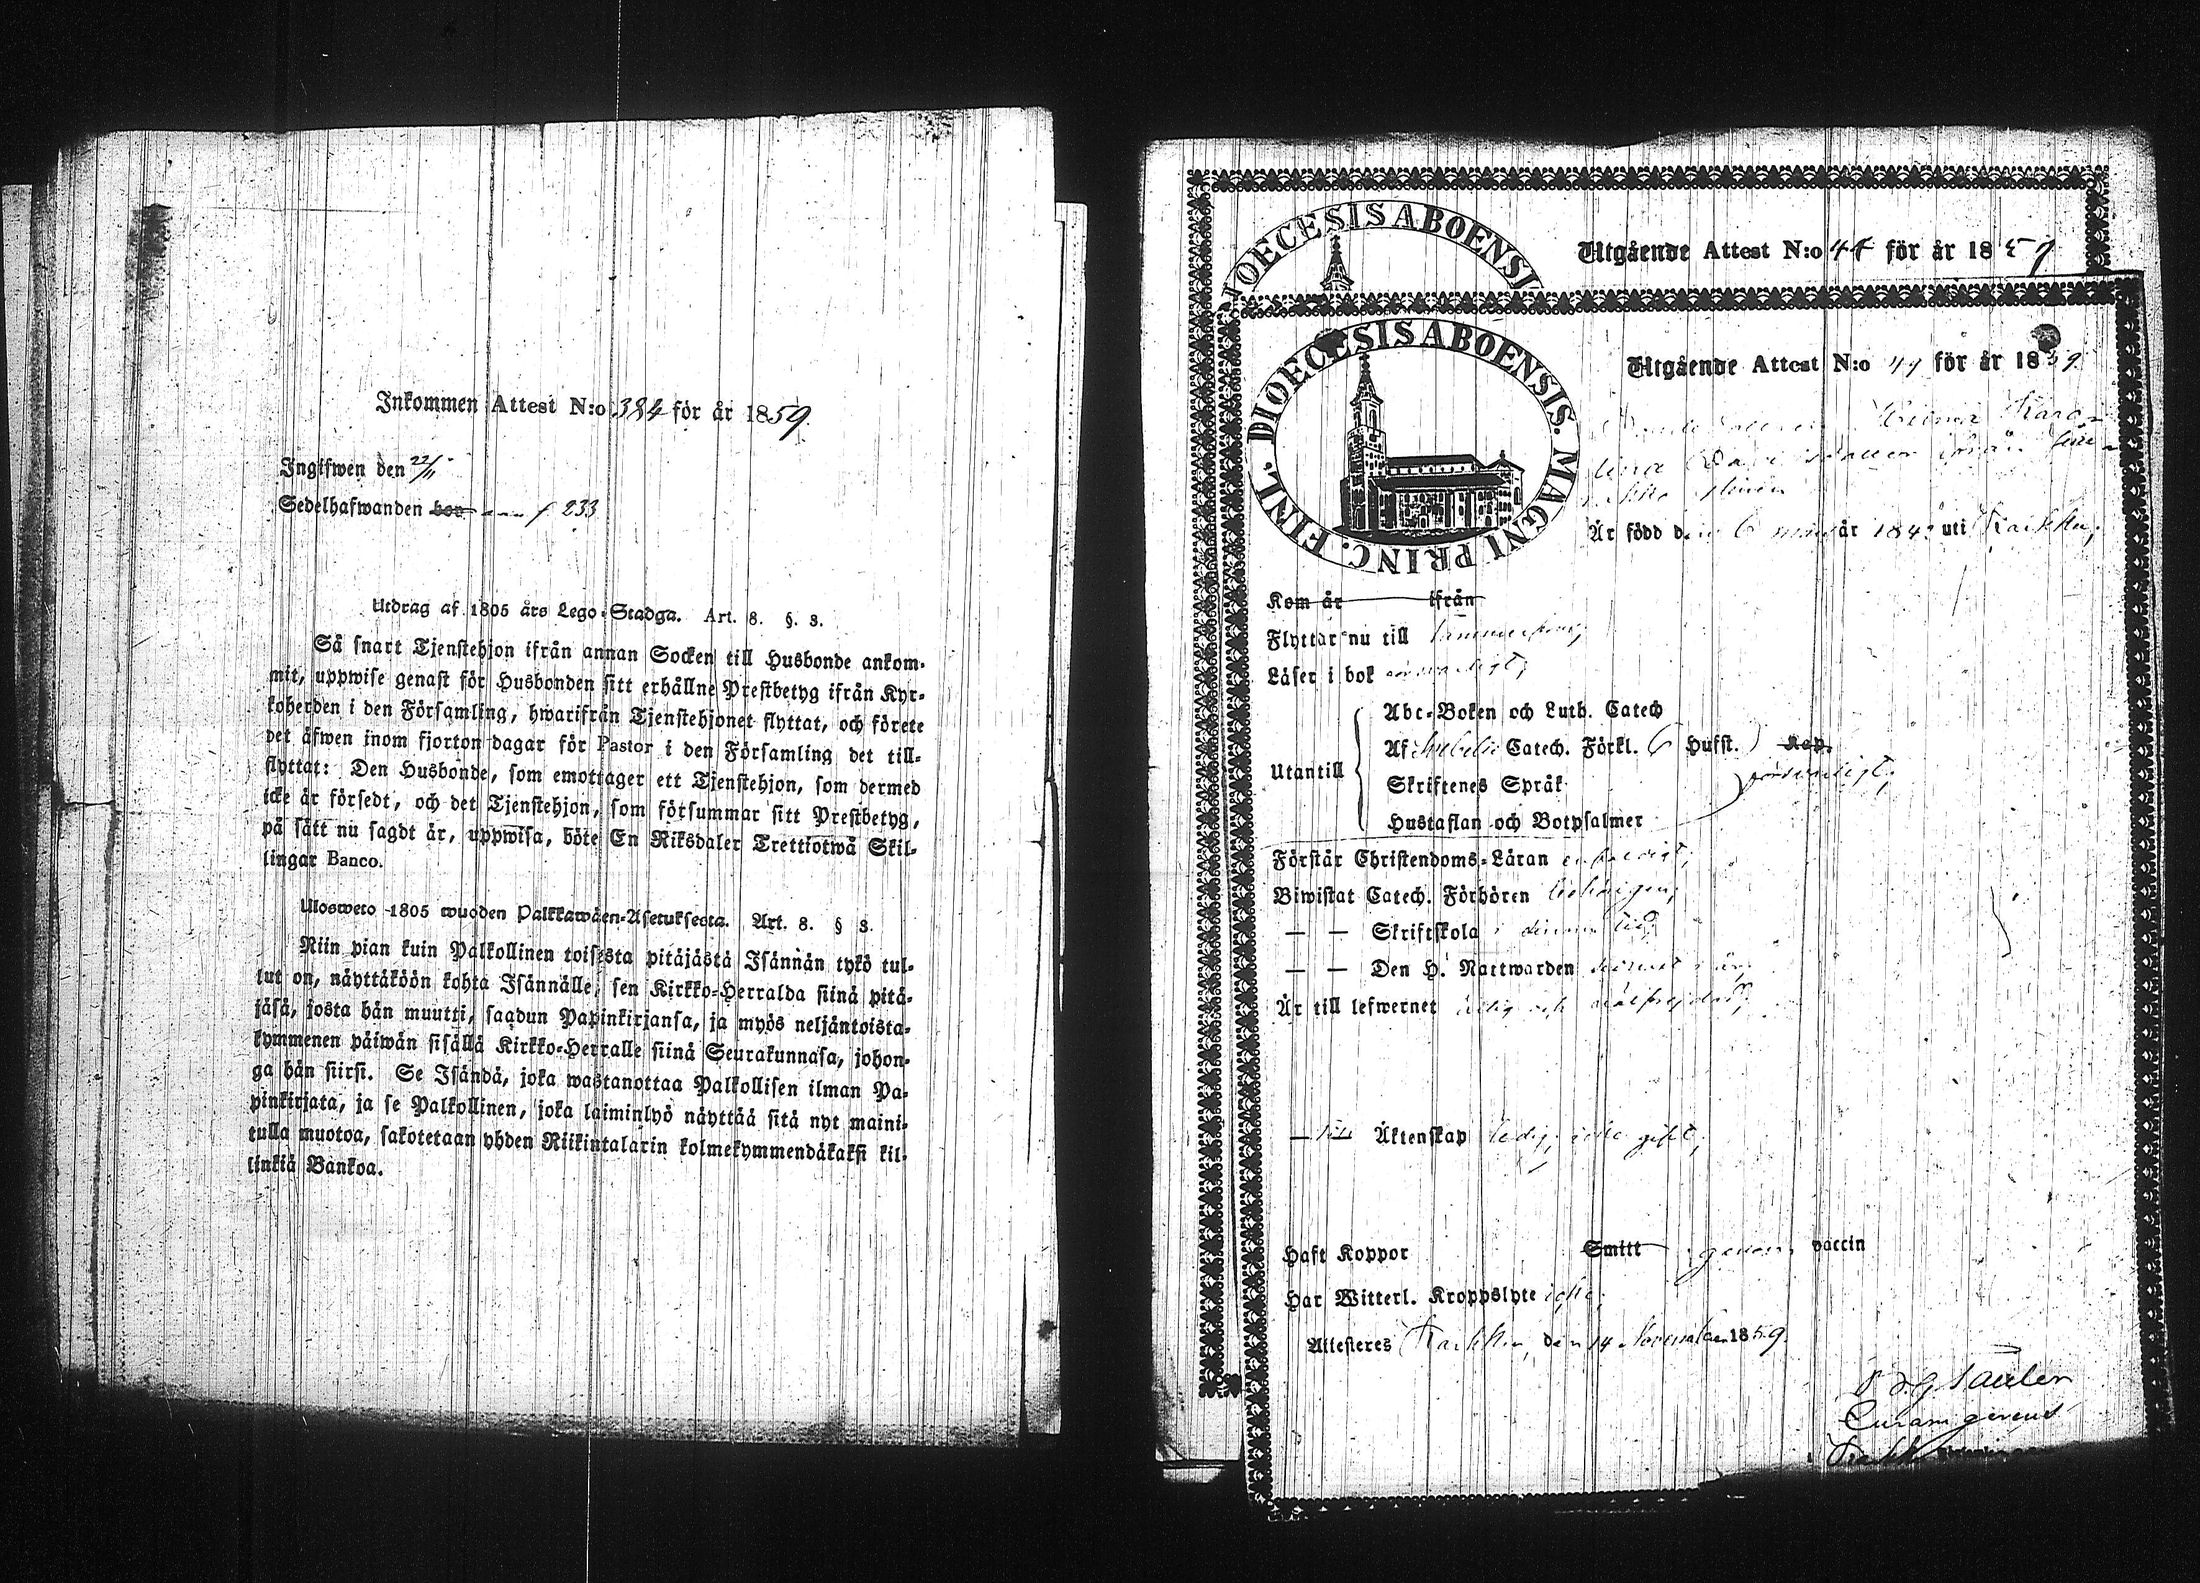 Inkommen Attest N:o 384 för år 1859.
Ingifwen den 22/11
Sedelhafwanden bor f 233
Utdrag af 1805 års Lego-Stadga. Art. 8. §. 3.
Så snart Tjenstehjon ifrån annan Socken till Husbonde ankom-
mit, uppwise genast för Husbonden sitt erhållne Prestbetyg ifrån Kyr-
koherden i den Församling, hwarifrån Tjenstehjonet flyttat, och förete
det äfwen inom fjorton dagar för Pastor i den Församling det till-
flyttat: Den Husbonde, som emottager ett Tjenstehjon, som dermed
icke är försedt, och det Tjenstehjon, som försummar sitt Prestbetyg,
på sätt nu sagdt är, uppwisa, böte En Riksdaler Trettiotwå Skil-
lingar Banco.
Ulosweto 1805 wuoden Palkkawäen-Asetuksesta. Art. 8. § 3.
Niin pian kuin Palkollinen toisesta pitäjästä Isännän tykö tul-
lut on, näyttäköön kohta Isännälle, sen Kirkko-Herralda siinä pitä-
jäsä, josta hän muutti, saadun Papinkirjansa, ja myös neljäntoista-
kymmenen päiwän sisällä Kirkko-Herralle siinä Seurakunnasa, johon-
ga hän siirsi. Se Isändä, joka wastanottaa Palkollisen ilman Pa-
pinkirjata, ja se Palkollinen, joka laiminlyö näyttää sitä nyt maini-
tulla muotoa, sakotetaan yhden Riikintalarin kolmekymmendäkaksi kil-
linkiä Bankoa.
DIOECESIS ABOENSI
Utgående Attest N:o 44 för år 1859
DIOECESIS ABOENSIS. MAGNI PRINC. FINL.
Utgående Attest N:o 49 för år 1859.
Karo-
lina
Är född den 6 år 184 uti Karkku;
Kom år ifrån
Flyttar nu till Tammerfors;
Läser i bok försvarligt;
Abc-Boken och Luth. Catech
Af Svebelii Catech. Förkl. ( Husst. ) Kap.
Utantill försvarligt;
Skriftenes Språk
Hustaflan och Botpsalmer
Förstår Christendoms-Läran
Biwistat Catech. Förhören behörigen;
— — Skriftskola i
— — Den H. Nattwarden
Är till lefwernet ärlig och välfrejdad;
— till Äktenskap ledig, icke gift;
Haft Koppor Smitt genom vaccin
Har Witterl. Kroppslyte icke;
Attesteres Karkku, den 14 November 1859.
Curam gerens